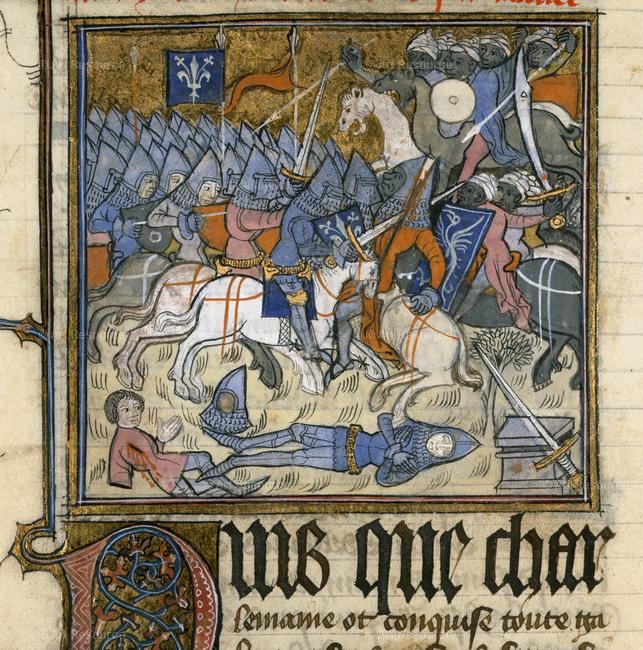 Puis que char
lemaine ot conquise toute ga